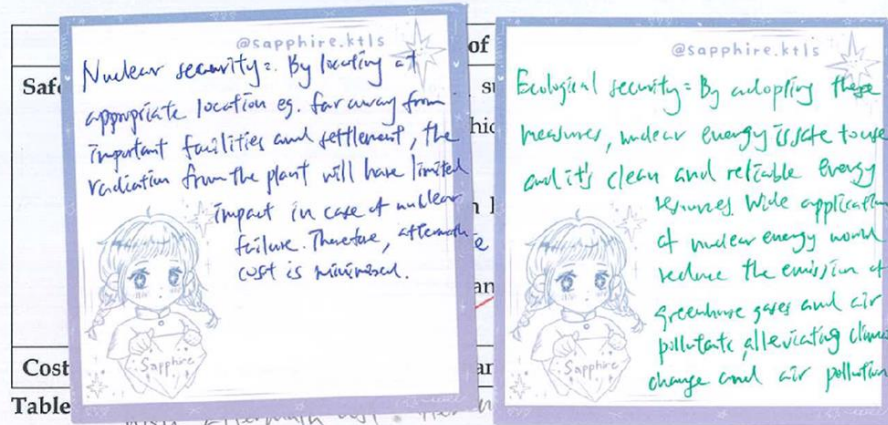 @sapphire.ktls
Nuclear security: By locating at
appropriate location eg. far away from
important facilities and settlement, the
radiation from the plant will have limited
impact in case of nuclear
failure. Therefore, aftermath
cost is minimised.
Sapphire
@sapphire.ktls
Ecological security: By adopting these
measures, nuclear energy is safe to use
and it's clean and reliable energy
resources. Wide application
of nuclear energy would
reduce the emission of
greenhouse gases and air
pollutants, alleviating clima
change and air pollution
Sapphire
of
Safe
Cost
Table